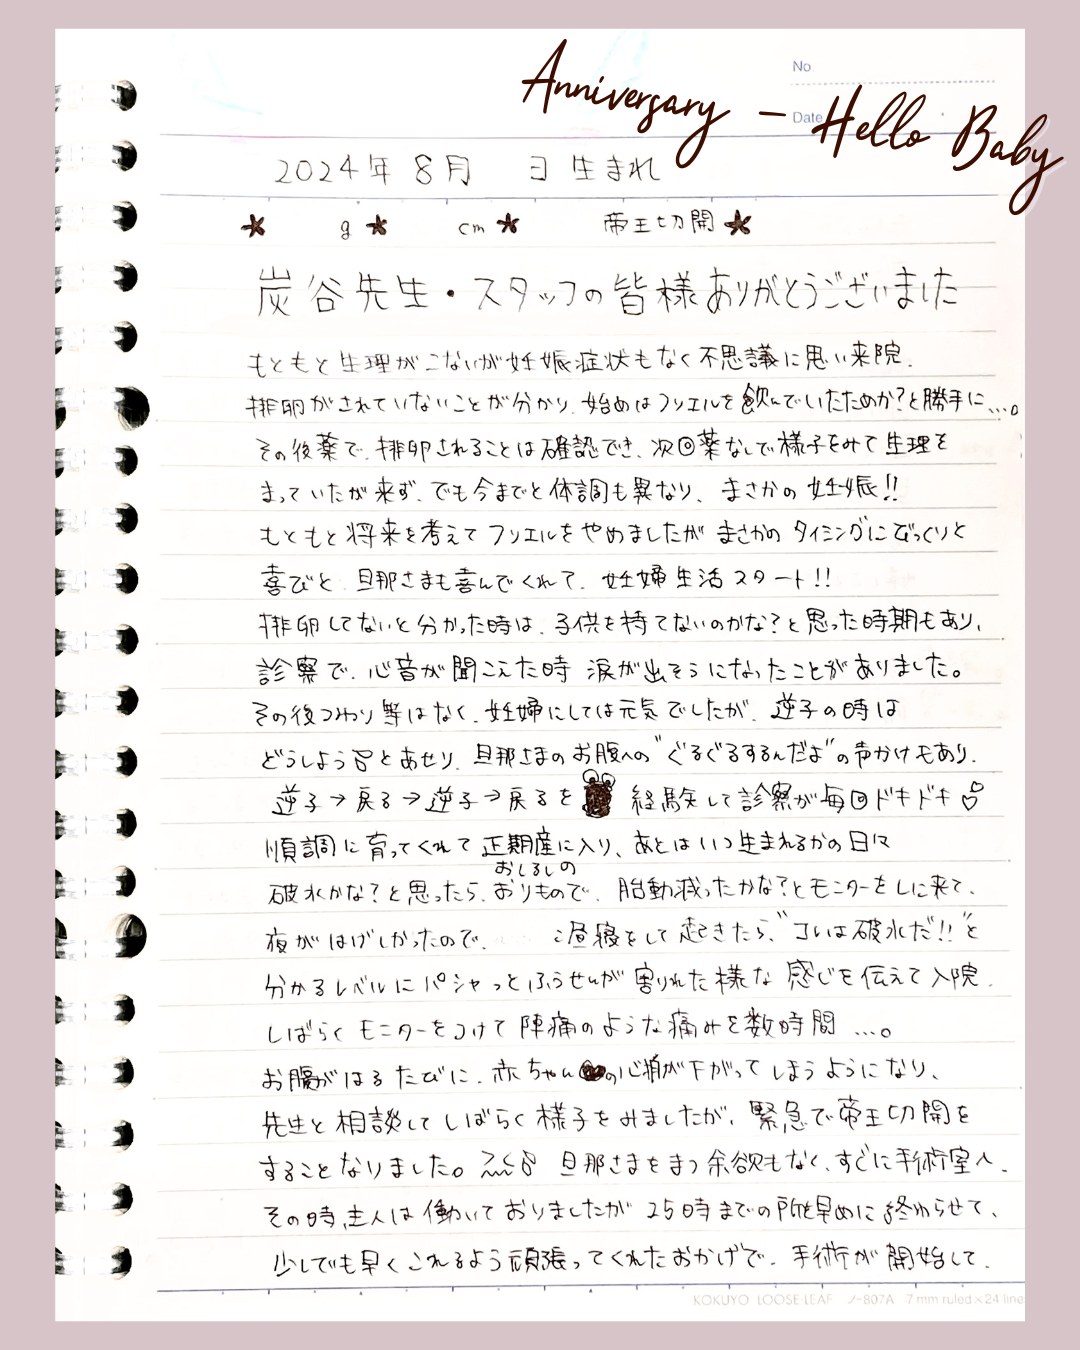 Anniversary - Hello Baby
No.
Date
2024年 8月 日 生まれ
g cm 帝王切開
炭谷先生・スタッフの皆様ありがとうございました
もともと生理がこないが妊娠症状もなく不思議に思い来院.
排卵がされていないことが分かり、始めはフリエルを飲んでいたためか?と勝手に…。
その後薬で、排卵されることは確認でき、次回薬なしで様子をみて生理を
まっていたが来ず、でも今までと体調も異なり、まさかの妊娠!!
もともと将来を考えてフリエルをやめましたがまさかのタイミングにびっくりと
喜びと、旦那さまも喜んでくれて、妊婦生活スタート!!
排卵してないと分かった時は、子供を持てないのかな?と思った時期もあり、
診察で、心音が聞こえた時 涙が出そうになったことがありました。
その後つわり等はなく、妊婦にしては元気でしたが、逆子の時は
どうしようとあせり、旦那さまのお腹への"ぐるぐるするんだよ"の声かけもあり、
逆子→戻る→逆子→戻るを 経験して診察が毎回ドキドキ♡
順調に育ってくれて正期産に入り、あとはいつ生まれるかの日々
おしるしの
破水かな?と思ったら、おりもので、胎動減ったかな?とモニターをしに来て、
夜がはげしかったので、 昼寝をして起きたら、"コレは破水だ!!"と
分かるレベルにパシャっとふうせんが割れた様な感じを伝えて入院.
しばらくモニターをつけて陣痛のような痛みを数時間 …。
お腹がはるたびに、赤ちゃんの心拍が下がってしまうようになり、
先生と相談してしばらく様子をみましたが、緊急で帝王切開を
することなりました。 旦那さまをまつ余欲もなく、すぐに手術室へ.
その時、主人は働いておりましたが 25時までの所を早めに終わらせて、
少しでも早くこれるよう頑張ってくれたおかげで、手術が開始して、
KOKUYO LOOSE-LEAF ノ-807A 7 mm ruled×24 line